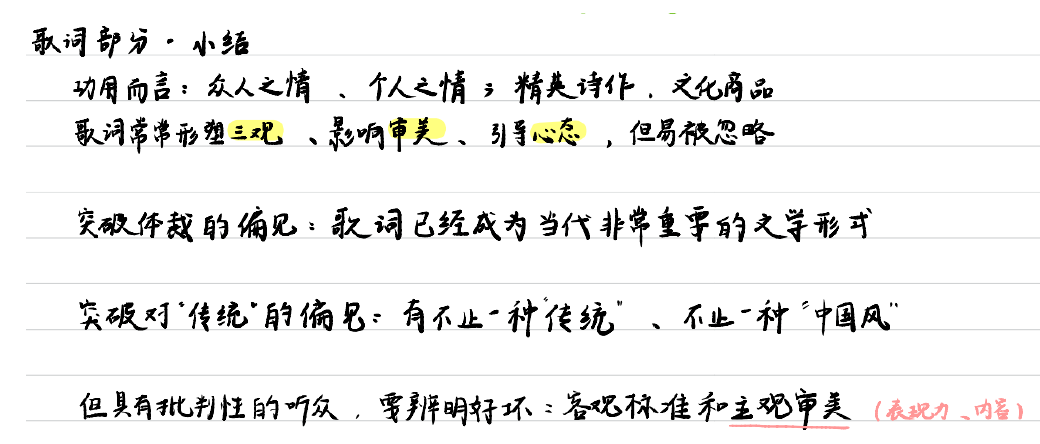 歌词部分·小结
功用而言：众人之情、个人之情；精英诗作、文化商品
歌词常常形塑三观、影响审美、引导心态，但易被忽略
突破体裁的偏见：歌词已经成为当代非常重要的文学形式
突破对"传统"的偏见：有不止一种"传统"、不止一种"中国风"
但具有批判性的听众，要辨明好坏：客观标准和主观审美（表现力、内容）